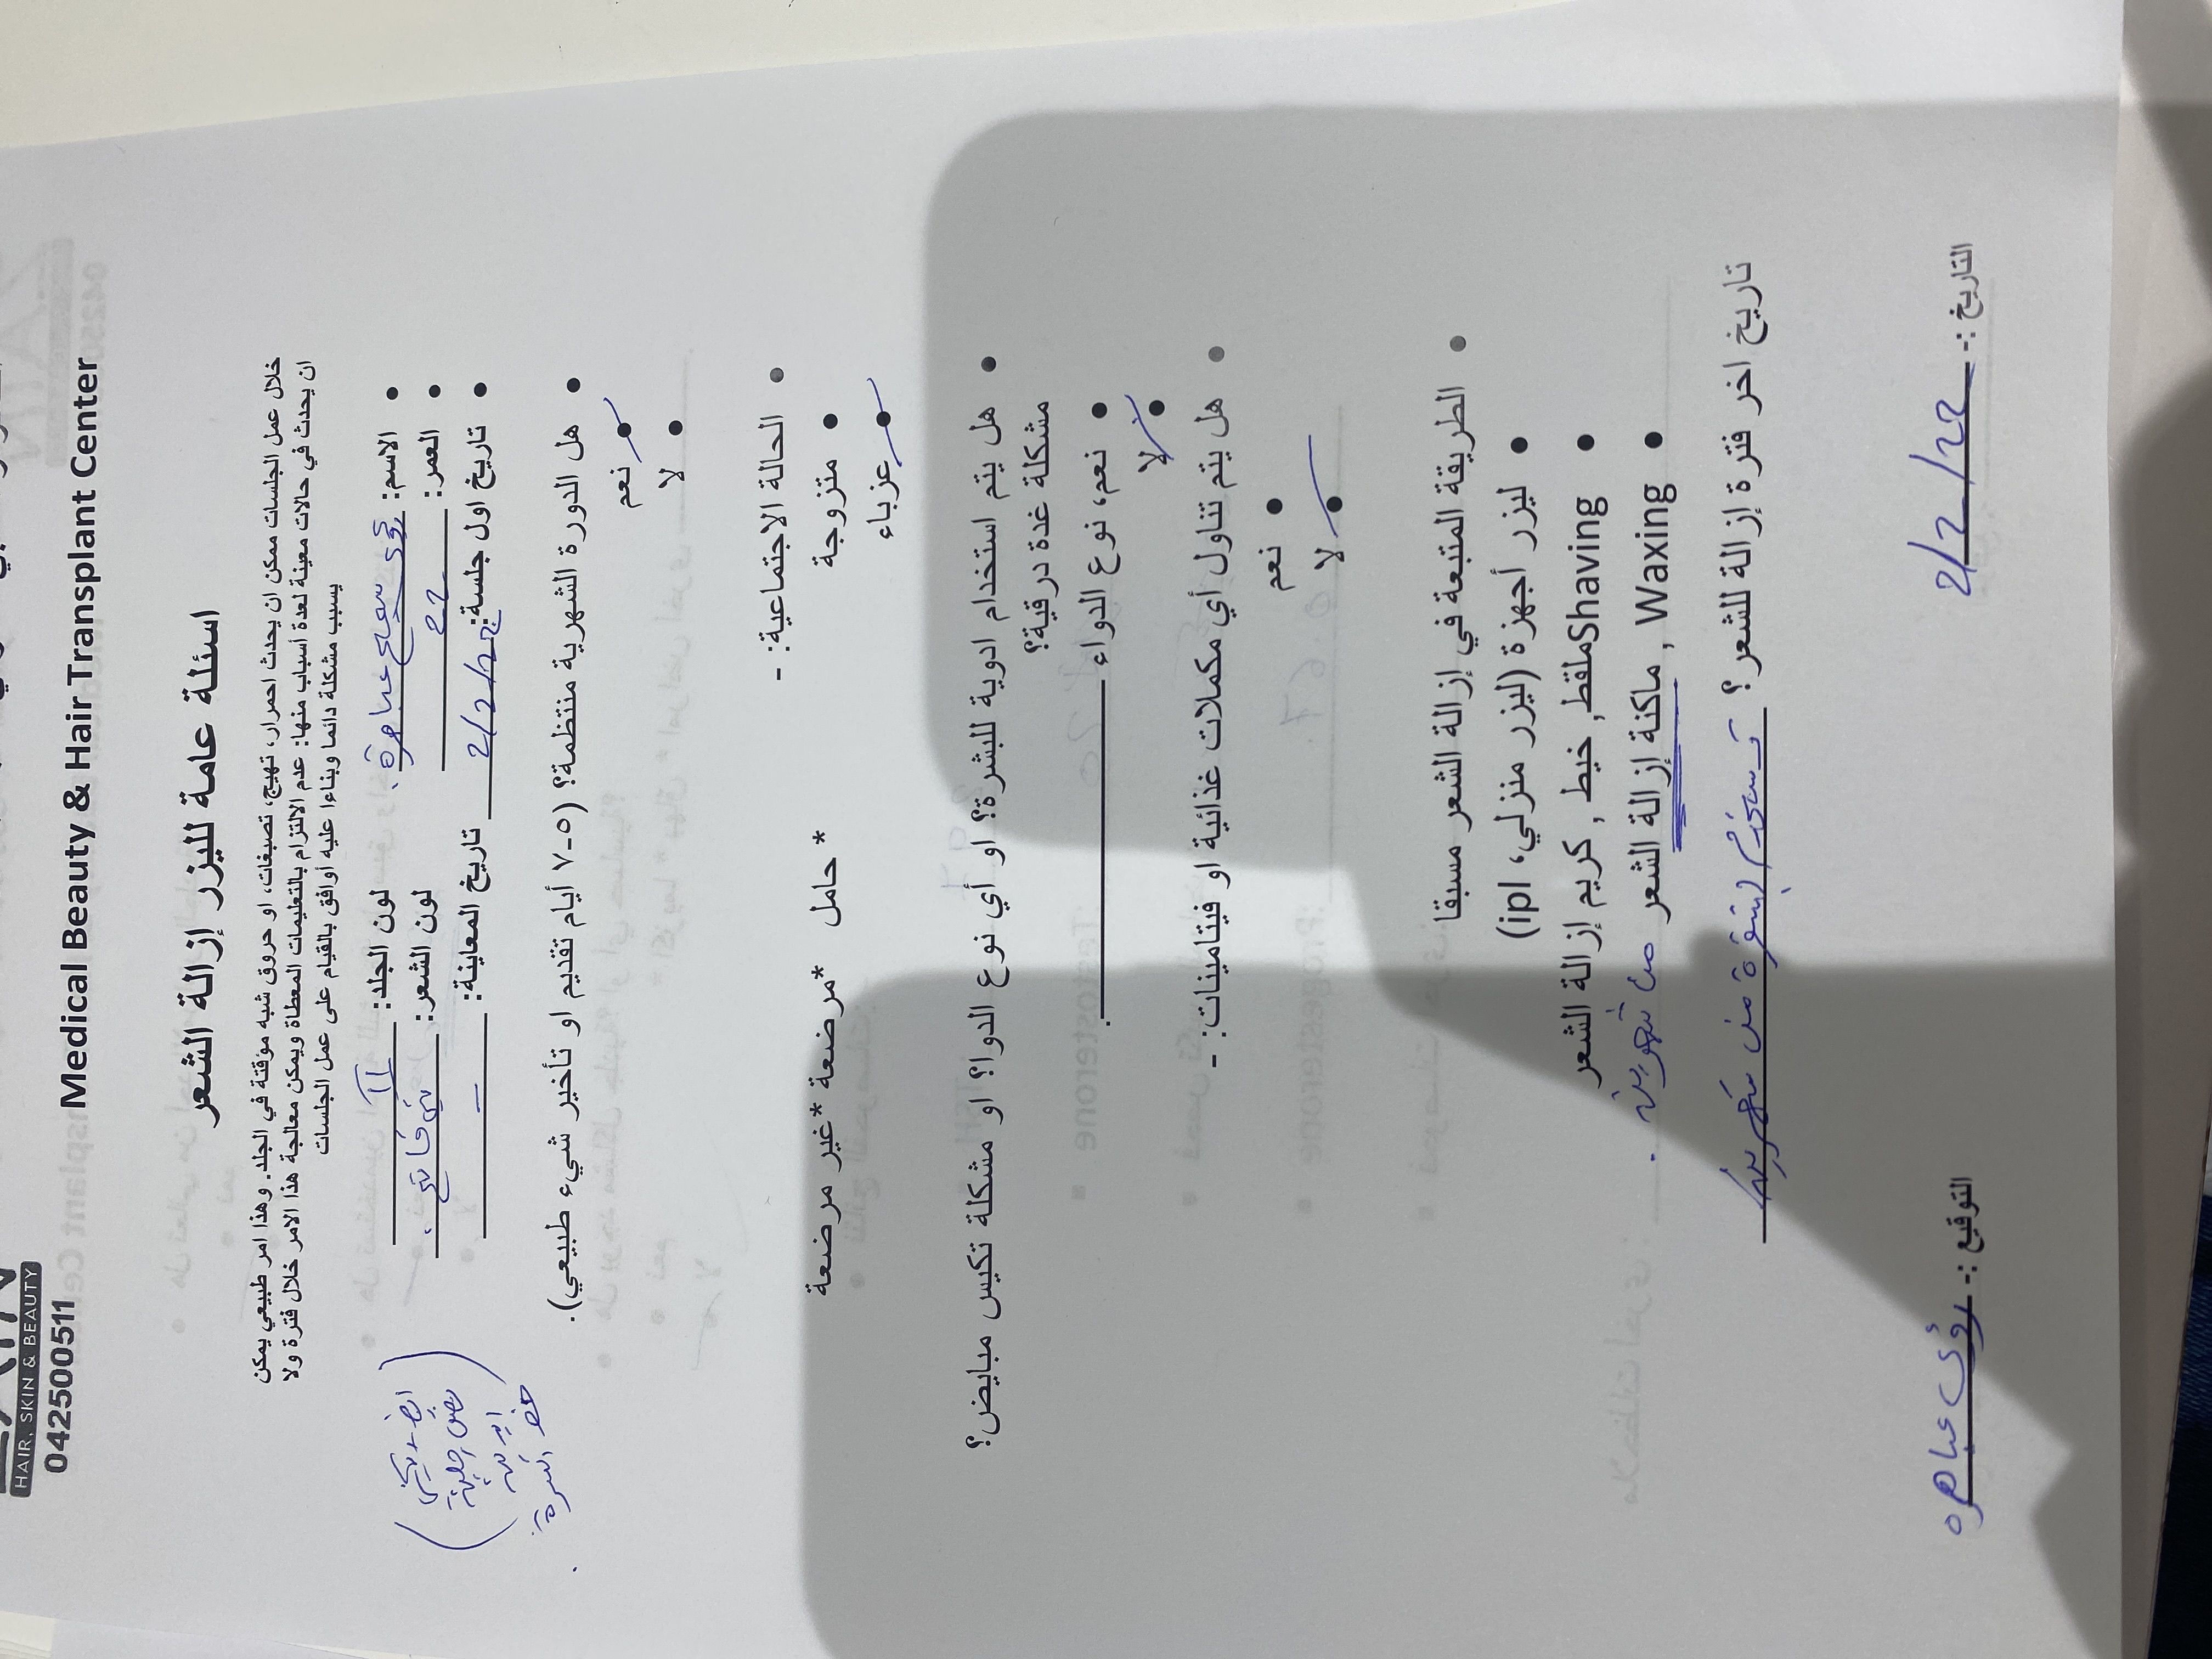 HAIR, SKIN & BEAUTY
042500511
Medical Beauty & Hair Transplant Center
اسئلة عامة لليزر إزالة الشعر
خلال عمل الجلسات ممكن ان يحدث احمرار، تهيج، تصبغات، او حروق شبه مؤقتة في الجلد. وهذا امر طبيعي يمكن
ان يحدث في حالات معينة لعدة أسباب منها: عدم الالتزام بالتعليمات المعطاة ويمكن معالجة هذا الامر خلال فترة ولا
يسبب مشكلة دائما وبناءا عليه أوافق بالقيام على عمل الجلسات
• الاسم: رؤى عباهرة لون الجلد: II
• العمر: 22 لون الشعر: بني فاتح
• تاريخ اول جلسة: تاريخ المعاينة: –
• هل الدورة الشهرية منتظمة؟ (٥-٧ أيام تقديم او تأخير شيء طبيعي).
• نعم
• لا
• الحالة الاجتماعية: -
• متزوجة * حامل *مرضعة *غير مرضعة
• عزباء
• هل يتم استخدام ادوية للبشرة؟ او أي نوع الدوا؟ او مشكلة تكيس مبايض؟
مشكلة غدة درقية؟
• نعم، نوع الدواء
• لا
• هل يتم تناول أي مكملات غذائية او فيتامينات: -
• نعم
• لا
• الطريقة المتبعة في إزالة الشعر مسبقا
• ليزر أجهزة (ليزر منزلي، ipl)
• Shavingملقط, خيط , كريم إزالة الشعر
• Waxing , ماكنة إزالة الشعر من شهرين
تاريخ اخر فترة إزالة للشعر؟ من شهرين
التاريخ:- التوقيع:- رؤى عباهره